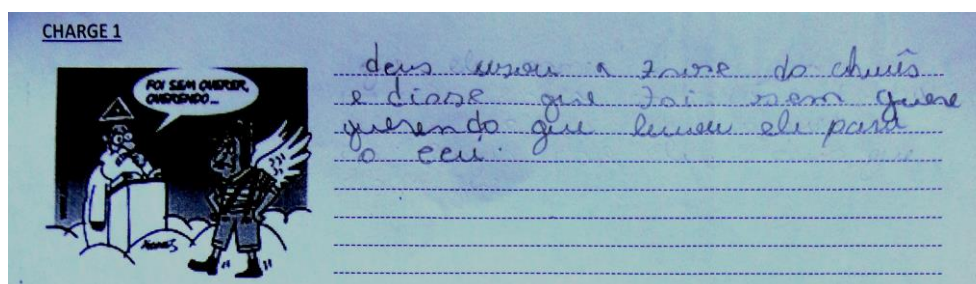 CHARGE 1
FOI SEM QUERER,
QUERENDO...
deus usou a frase do chaves
e disse que foi sem quere
querendo que levou ele para
o ceu.